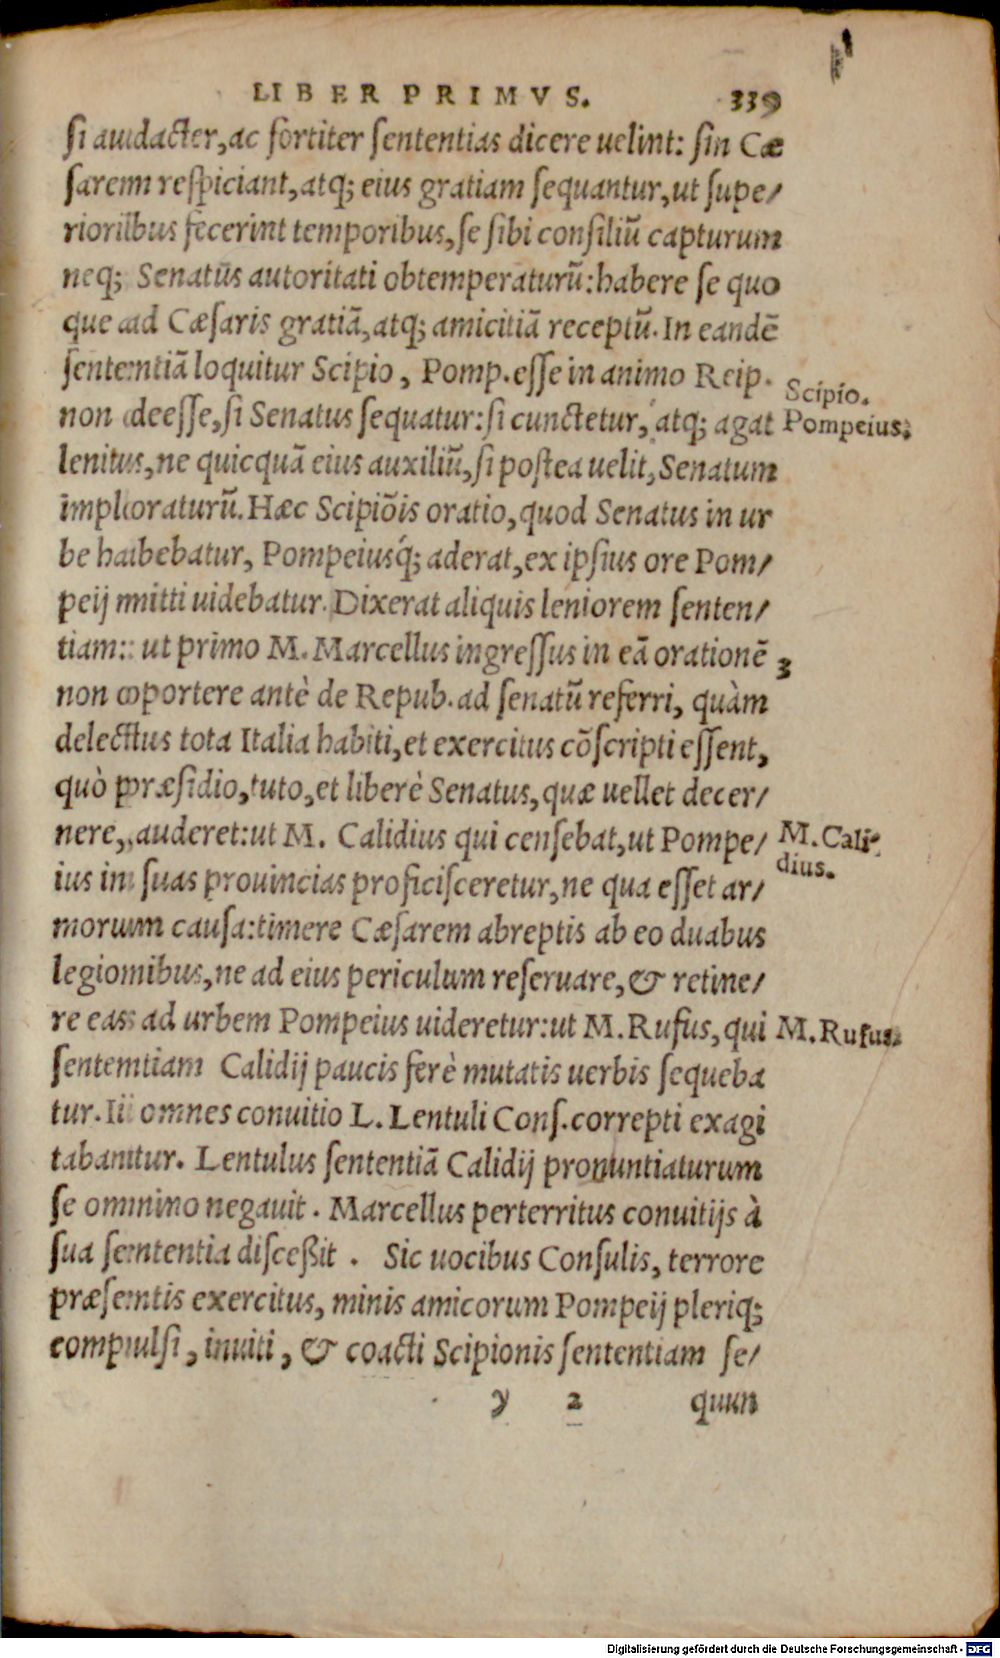 LIBER PRIMVS. 339
ſi audacter, ac fortiter ſententias dicere uelint: ſin Cæ
ſarem reſpiciant, atq; eius gratiam ſequantur, ut ſupe/
rioribus fecerint temporibus, ſe ſibi conſiliũ capturum
neq; Senatus autoritati obtemperaturũ: habere ſe quo
que ad Cæſaris gratiã, atq; amicitiã receptũ. In eandẽ
ſententiã loquitur Scipio, Pomp. eſſe in animo Reip.
Scipio.
non deeſſe, ſi Senatus ſequatur: ſi cunctetur, atq; agat
Pompeius.
lenius, ne quicquã eius auxiliũ, ſi poſtea uelit, Senatum
imploraturũ. Hæc Scipiõis oratio, quod Senatus in ur
be habebatur, Pompeiusq́; aderat, ex ipſius ore Pom/
peij mitti uidebatur. Dixerat aliquis leniorem ſenten/
tiam: ut primo M. Marcellus ingreſſus in eã orationẽ
3
non oportere antè de Repub. ad ſenatũ referri, quàm
delectus tota Italia habiti, et exercitus cõſcripti eſſent,
quò præſidio, tuto, et liberè Senatus, quæ uellet decer/
nere, auderet: ut M. Calidius qui cenſebat, ut Pompe/
M. Cali
ius in ſuas prouincias proficiſceretur, ne qua eſſet ar/
dius.
morum cauſa: timere Cæſarem abreptis ab eo duabus
legionibus, ne ad eius periculum reſeruare, & retine/
re eas ad urbem Pompeius uideretur: ut M. Rufus, qui
M. Rufus.
ſententiam Calidij paucis ferè mutatis uerbis ſequeba
tur. Ii omnes conuitio L. Lentuli Conſ. correpti exagi
tabantur. Lentulus ſententiã Calidij pronuntiaturum
ſe omnino negauit. Marcellus perterritus conuitijs à
ſua ſententia diſceßit. Sic uocibus Conſulis, terrore
præſentis exercitus, minis amicorum Pompeij pleriq;
compulſi, inuiti, & coacti Scipionis ſententiam ſe/
y 2 quun
Digitalisierung gefördert durch die Deutsche Forschungsgemeinschaft - DFG